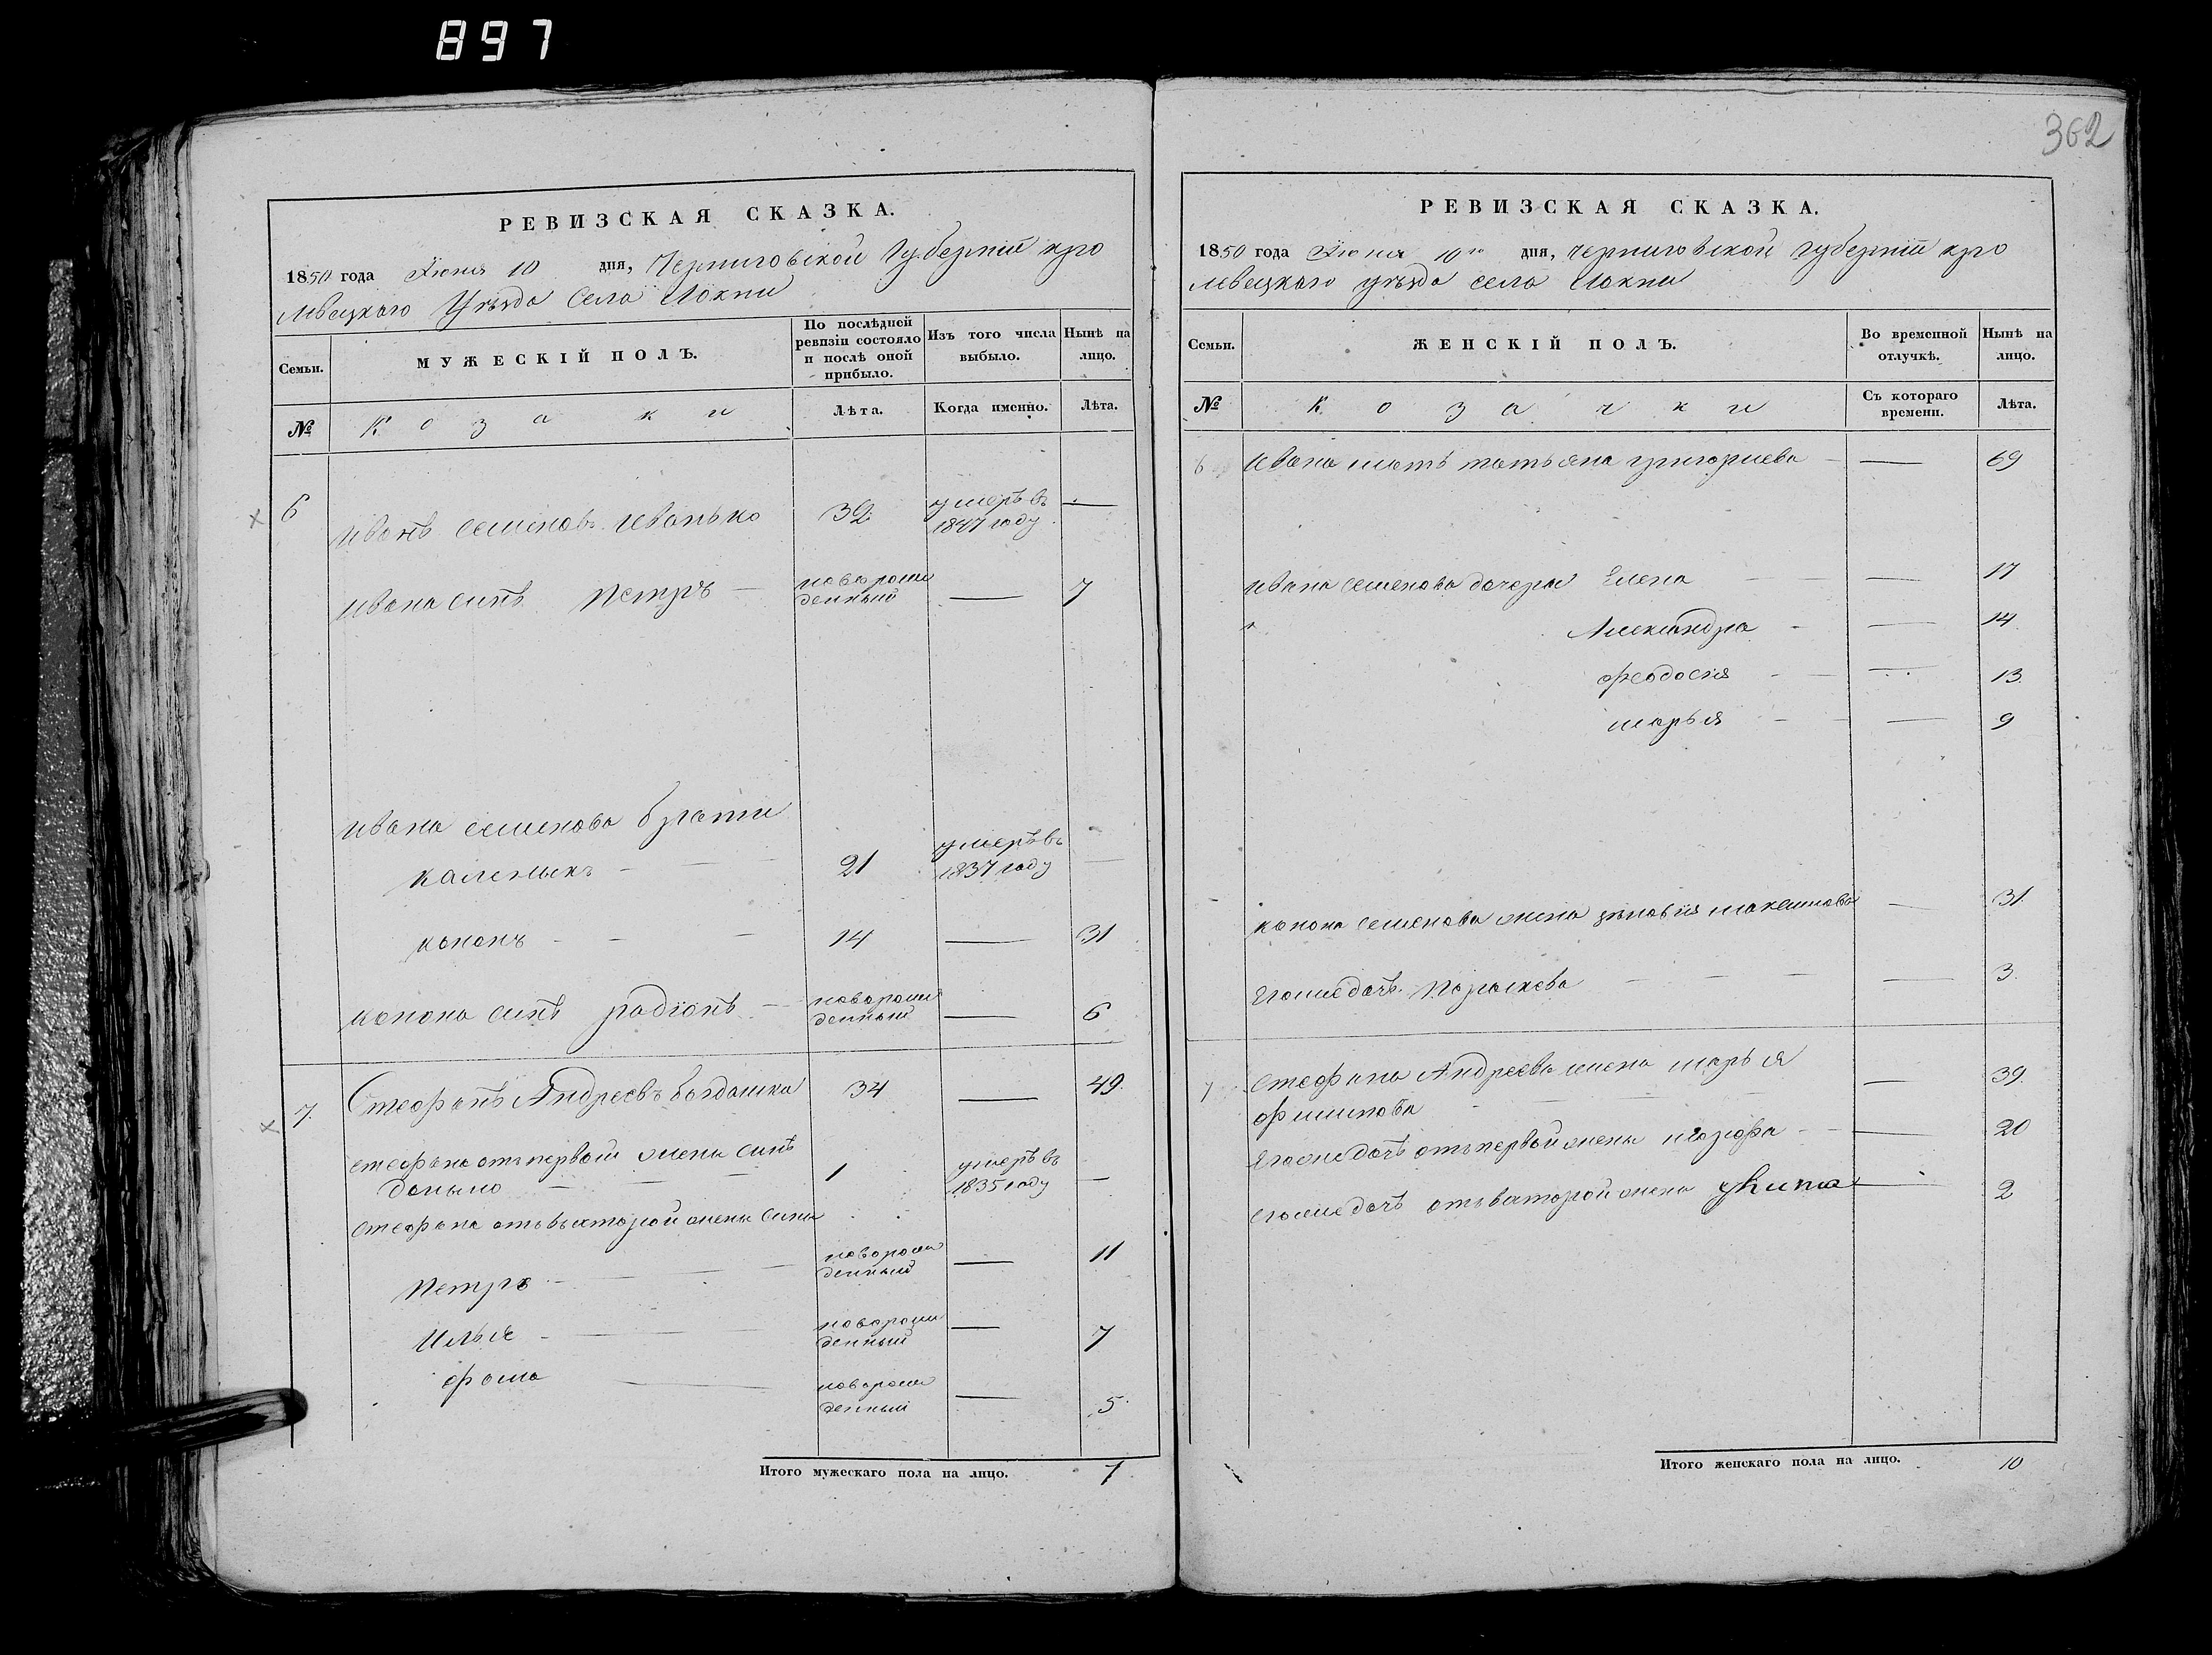 897
362
РЕВИЗСКАЯ СКАЗКА.
1850 года Июня 10 дня, Черниговской Губернiи кро
левецкого Уѣзда Села Локни
Семьи.
МУЖЕСКIЙ ПОЛЪ.
По послѣдней ревизiи состояло и послѣ оной прибыло.
Изъ того числа выбыло.
Нынѣ на лицо.
№
Козаки
Лѣта.
Когда именно.
Лѣта.
6 Иванъ Семеновъ Иванько 32 умеръ въ 1847 году —
Ивана синъ Петръ — новорож денный — 7
Ивана Семенова брати
Каленыкъ — 21 умеръ въ 1837 году —
кононъ — 14 — 31
конона синъ радiонъ — новорож денный — 6
7. Стефанъ Андреевъ богдашка 34 — 49.
стефана отъ первой жены синъ
даныло — 1 умеръ въ 1835 году —
стефана отъ второй жены сины
Петръ — новорож денный — 11
Илья — новорож денный — 7
фома — новорож денный — 5.
Итого мужескаго пола на лицо. 7
РЕВИЗСКАЯ СКАЗКА.
1850 года Июня 10го дня, черниговской губернiи кро
левецкаго уѣзда села Локни
Семьи.
ЖЕНСКIЙ ПОЛЪ.
Во временной отлучкѣ.
Нынѣ на лицо.
№
Козачки
Съ котораго времени.
Лѣта.
6 Ивана мать татьяна григориева — 69
Ивана семенова дочери Елена — 17
Александра — 14
феодосия — 13
марья — 9
конона семенова жена зѣновiя максимова — 31
Егоже дочь Параскева — 3
7 стефана Андреева жена марья
филипова — 39.
Егоже дочь отъ первой жены — 20
егоже дочь отъ второй жены — 2
Итого женскаго пола на лицо. 10